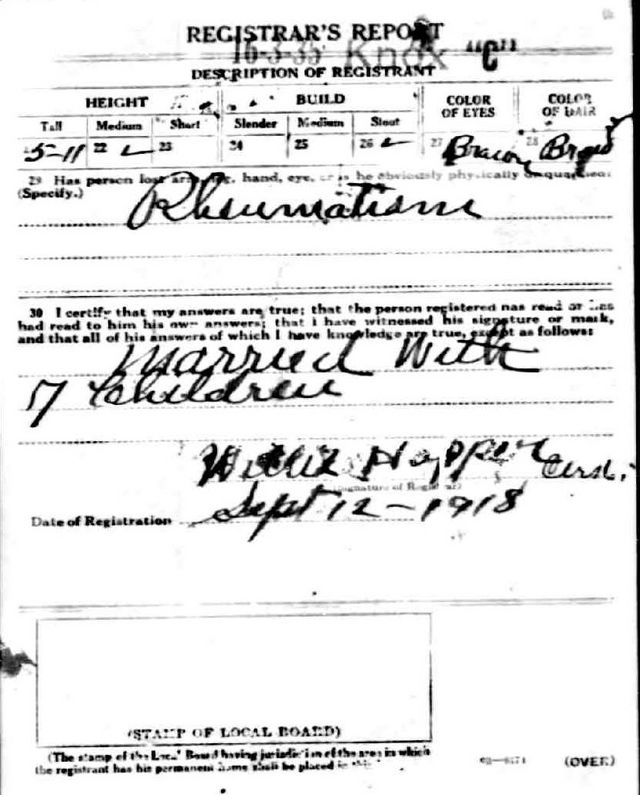 REGISTRAR'S REPORT
16-3-35 Knox "C"
DESCRIPTION OF REGISTRANT
HEIGHT BUILD COLOR OF EYES COLOR OF HAIR
Tall Medium Short Slender Medium Stout
5-11 22 23 24 25 26 27 Brown 28
29 Has person lost arm, leg, hand, eye, or is he obviously physically disqualified?
(Specify.)
Rheumatism
30 I certify that my answers are true; that the person registered has read or has
had read to him his own answers; that I have witnessed his signature or mark,
and that all of his answers of which I have knowledge are true, except as follows:
Married With
7 Children
Willie Hopper
(Signature of Registrar)
Date of Registration Sept 12-1918
(STAMP OF LOCAL BOARD)
(The stamp of the Local Board having jurisdiction of the area in which
the registrant has his permanent home shall be placed in this
(OVER)